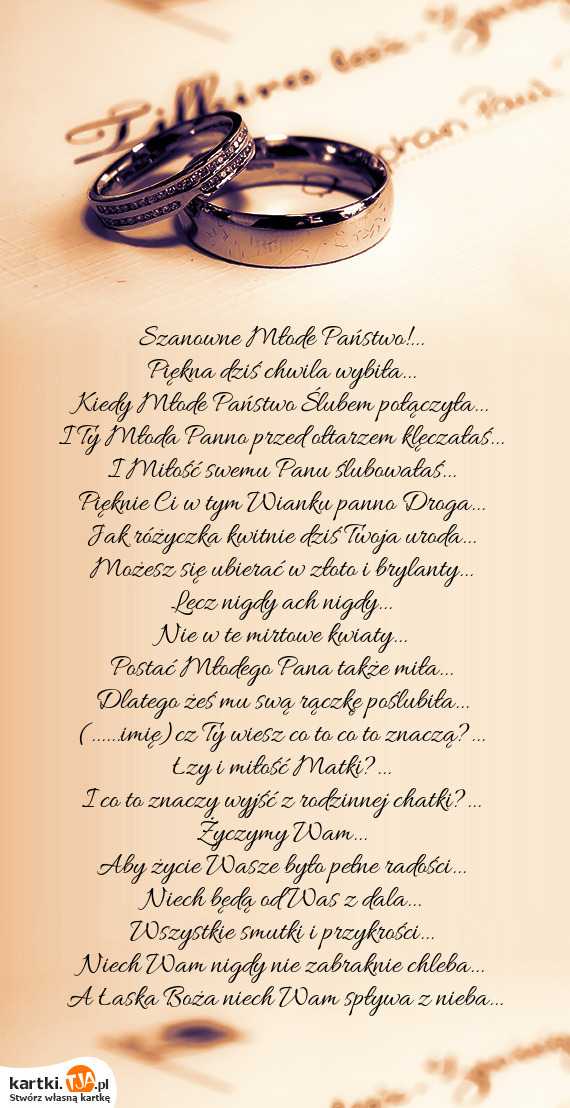 Szanowne Młode Państwo!...
Piękna dziś chwila wybiła...
Kiedy Młode Państwo Ślubem połączyła...
I Ty Młoda Panno przed ołtarzem klęczałaś...
I Miłość swemu Panu ślubowałaś...
Pięknie Ci w tym Wianku panno Droga...
Jak różyczka kwitnie dziś Twoja uroda...
Możesz się ubierać w złoto i brylanty...
Lecz nigdy ach nigdy...
Nie w te mirtowe kwiaty...
Postać Młodego Pana także miła...
Dlatego żeś mu swą rączkę poślubiła...
(......imię) cz Ty wiesz co to co to znaczą?...
Łzy i miłość Matki?...
I co to znaczy wyjść z rodzinnej chatki?...
Życzymy Wam...
Aby życie Wasze było pełne radości...
Niech będą od Was z dala...
Wszystkie smutki i przykrości...
Niech Wam nigdy nie zabraknie chleba...
A Łaska Boża niech Wam spływa z nieba...
kartki.TJA.pl
Stwórz własną kartkę